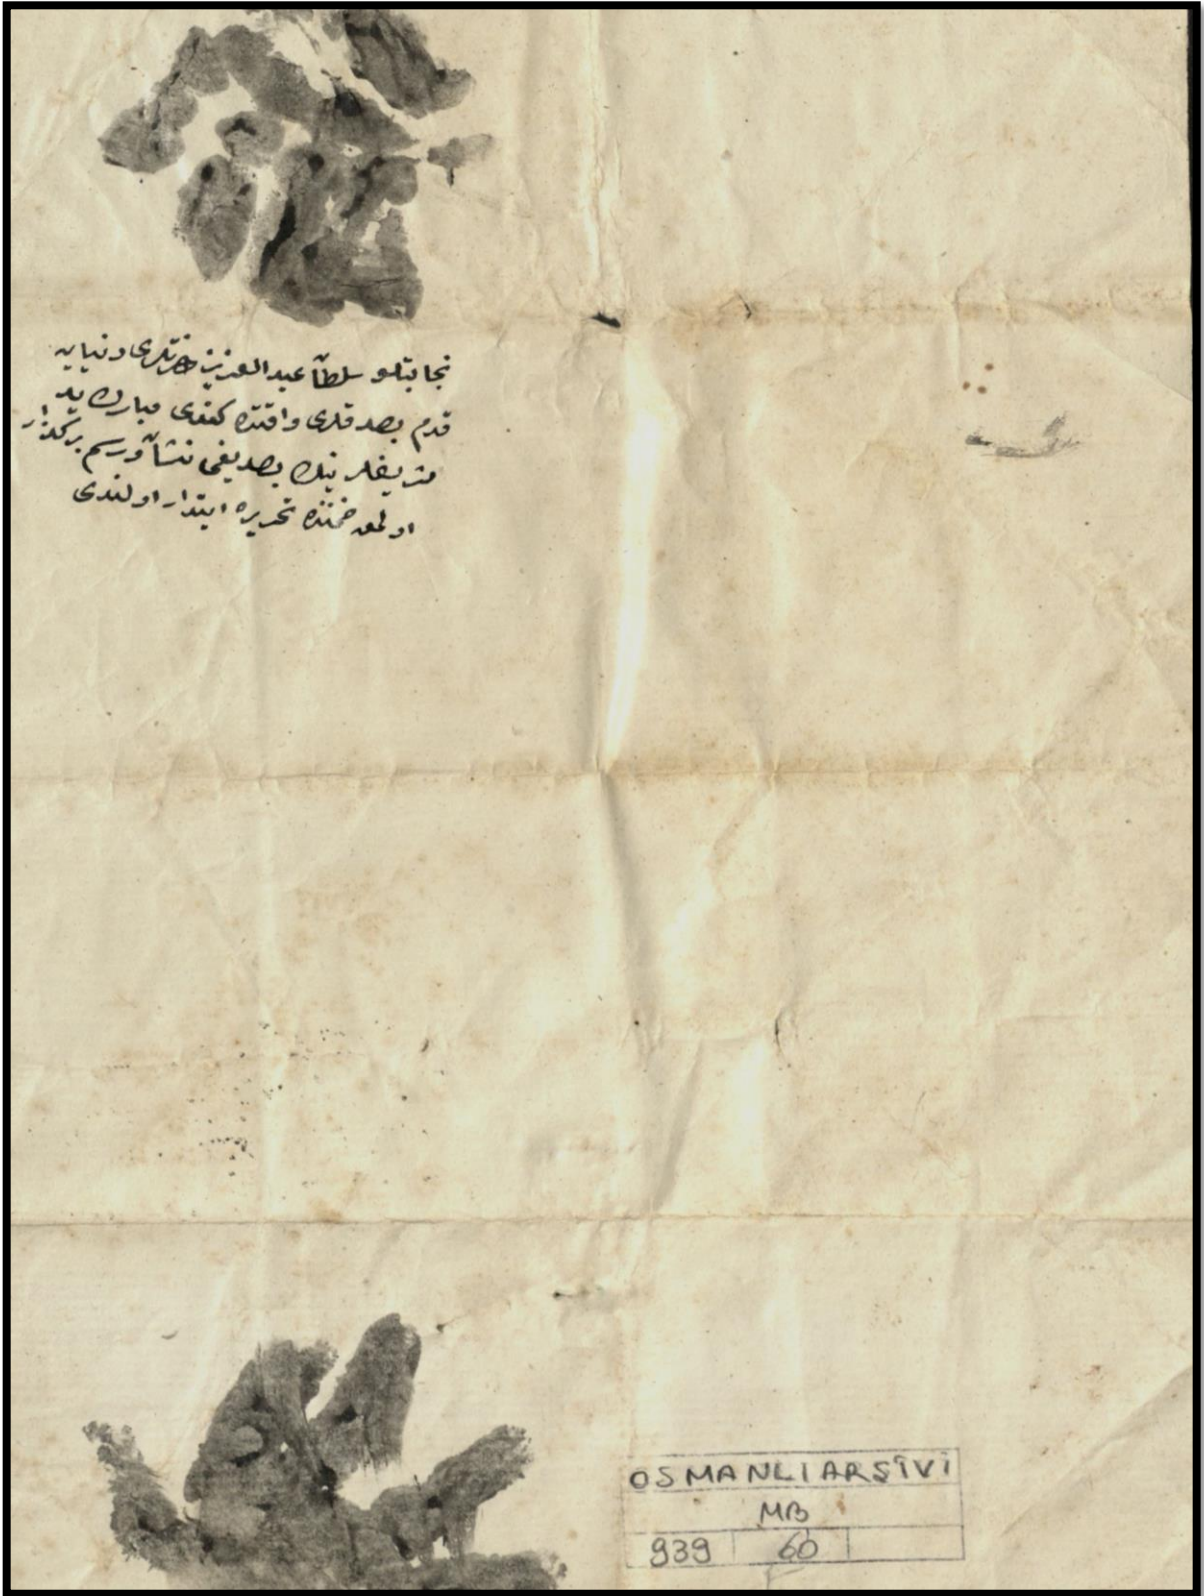 نجابتلو سلطان عبدالعزيز حضرتلرى دنيايه
قدم بصدقلرى وقتده كندى مبارك يد
شريفلرينك بصديغى نشان و رسم بركذار
اولمق ضمننده تحريره ابتدار اولندى
OSMANLI ARŞİVİ
MB
939 60